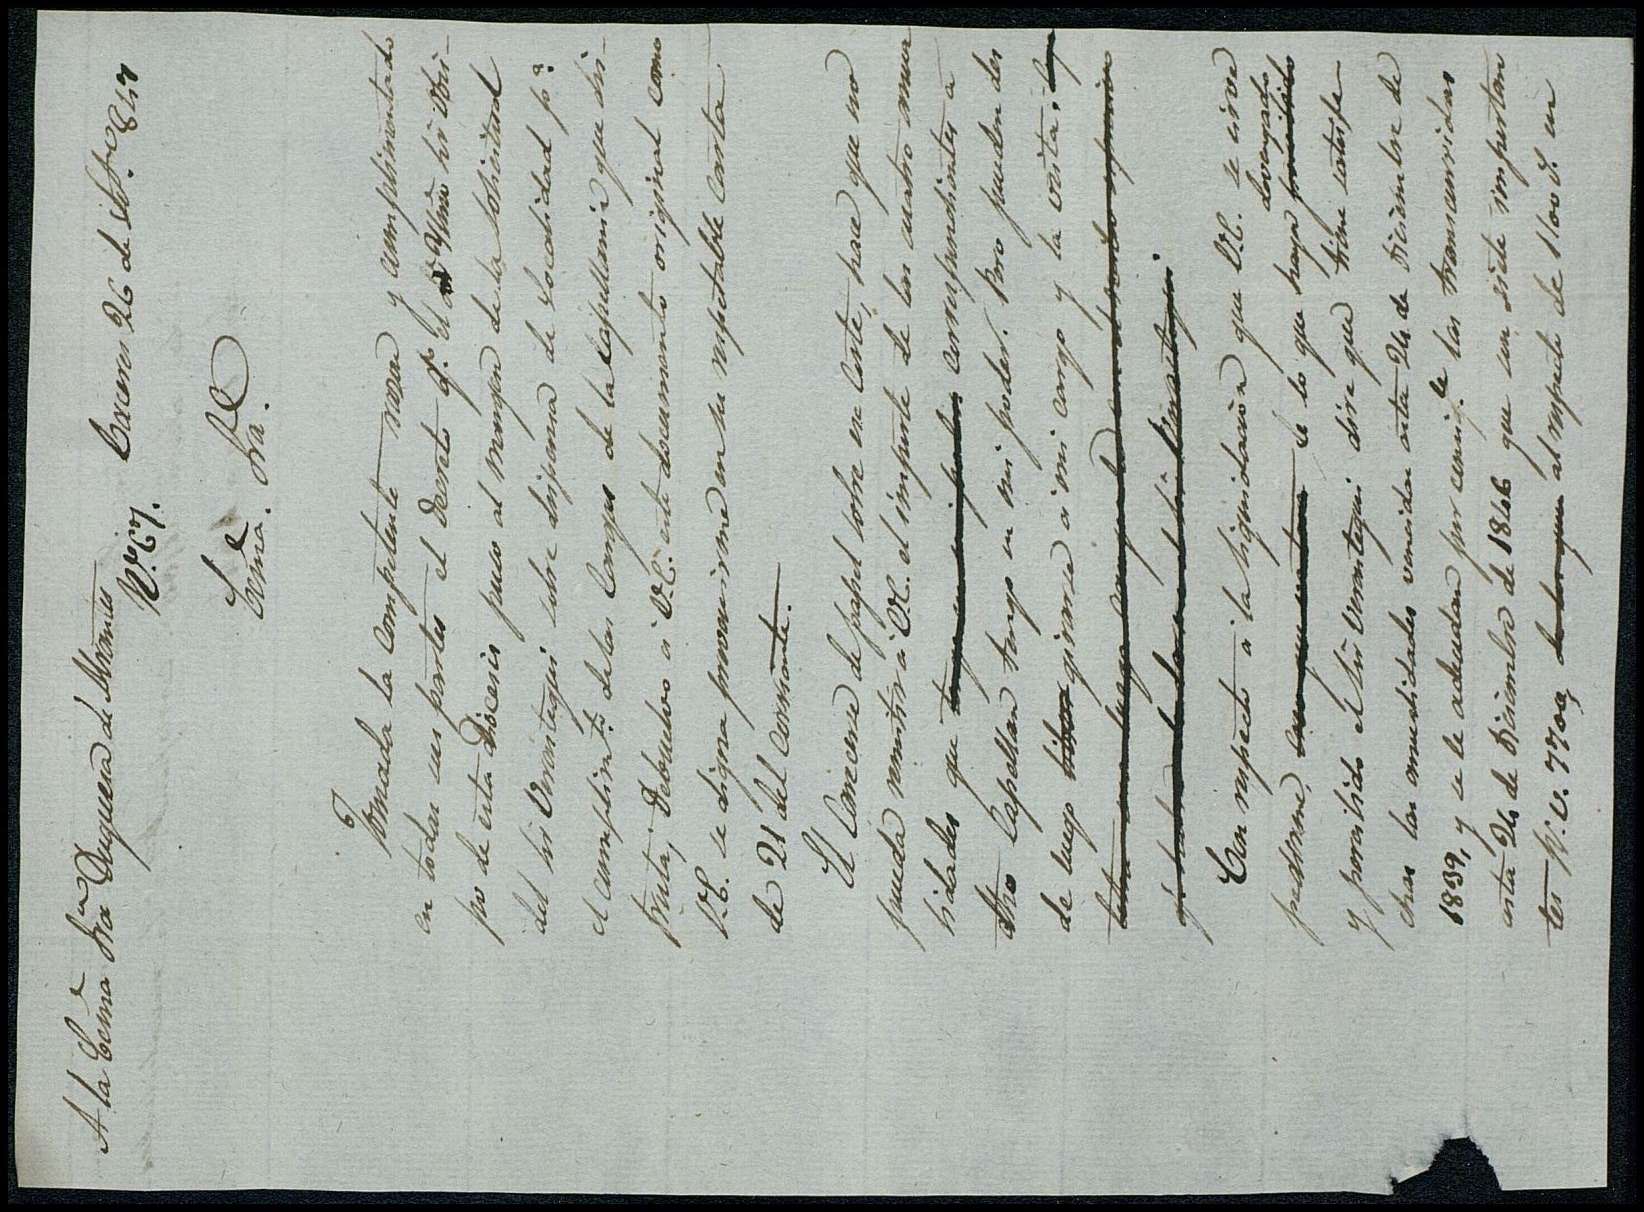 A la Exma Sra Duquesa de Abrantes
Rda. en 27.
Caceres 26 de Sbre 847
Exma. Sra.
Tomada la competente razon y cumplimentado
en todas sus partes el decreto qe. el Yllmo Sr Obis-
po de esta Diocesis puso al margen de la solicitud
del Sr Verastegui sobre dispensa de Localidad pa.
el cumplimto. de las Cargas de la Capellania que dis-
fruta, debuelvo á V.E. este documento original como
V.E. se digna prevenirme en su respetable carta
de 21 del corriente.
El Carecerse de papel sobre esa Corte, hace que no
pueda remitir á V.E. el importe de las cuatro anua-
lidades que correspondientes a
dho Capellan tengo en mi poder. Pero pueden des
de luego girarse á mi cargo y la vista.
Con respecto á la liquidacion que V.E. se sirve
prevenirme, de lo que haya devengado
y percibido el Sr Verastegui diré que tiene satisfe
chas las anualidades vencidas asta 24 de Diciembre de
1839, y se le adeudan por consigte. las transcurridas
asta 24 de Diciembre de 1846 que son siete importan
tes Rs. v. 7700, al respecto de 1100 rs. en